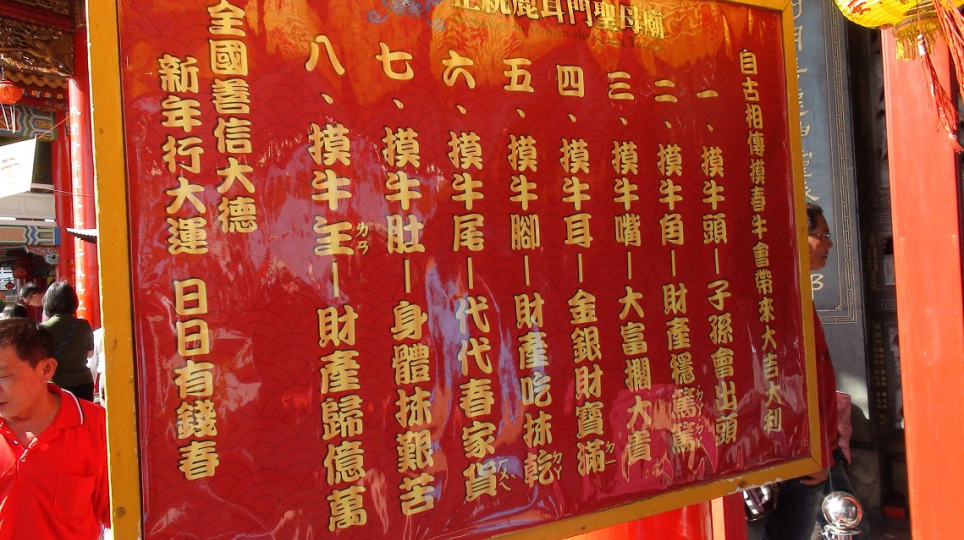 正統鹿耳門聖母廟
自古相傳摸春牛會帶來大吉大利
一、摸牛頭—子孫會出頭
二、摸牛角—財產穩篤篤
三、摸牛嘴—大富擱大貴
四、摸牛耳—金銀財寶滿
五、摸牛腳—財產吃抹乾
六、摸牛尾—代代春家貨
七、摸牛肚—身體抹艱苦
八、摸牛—財產歸億萬
全國善信大德
新年行大運 日日有錢春